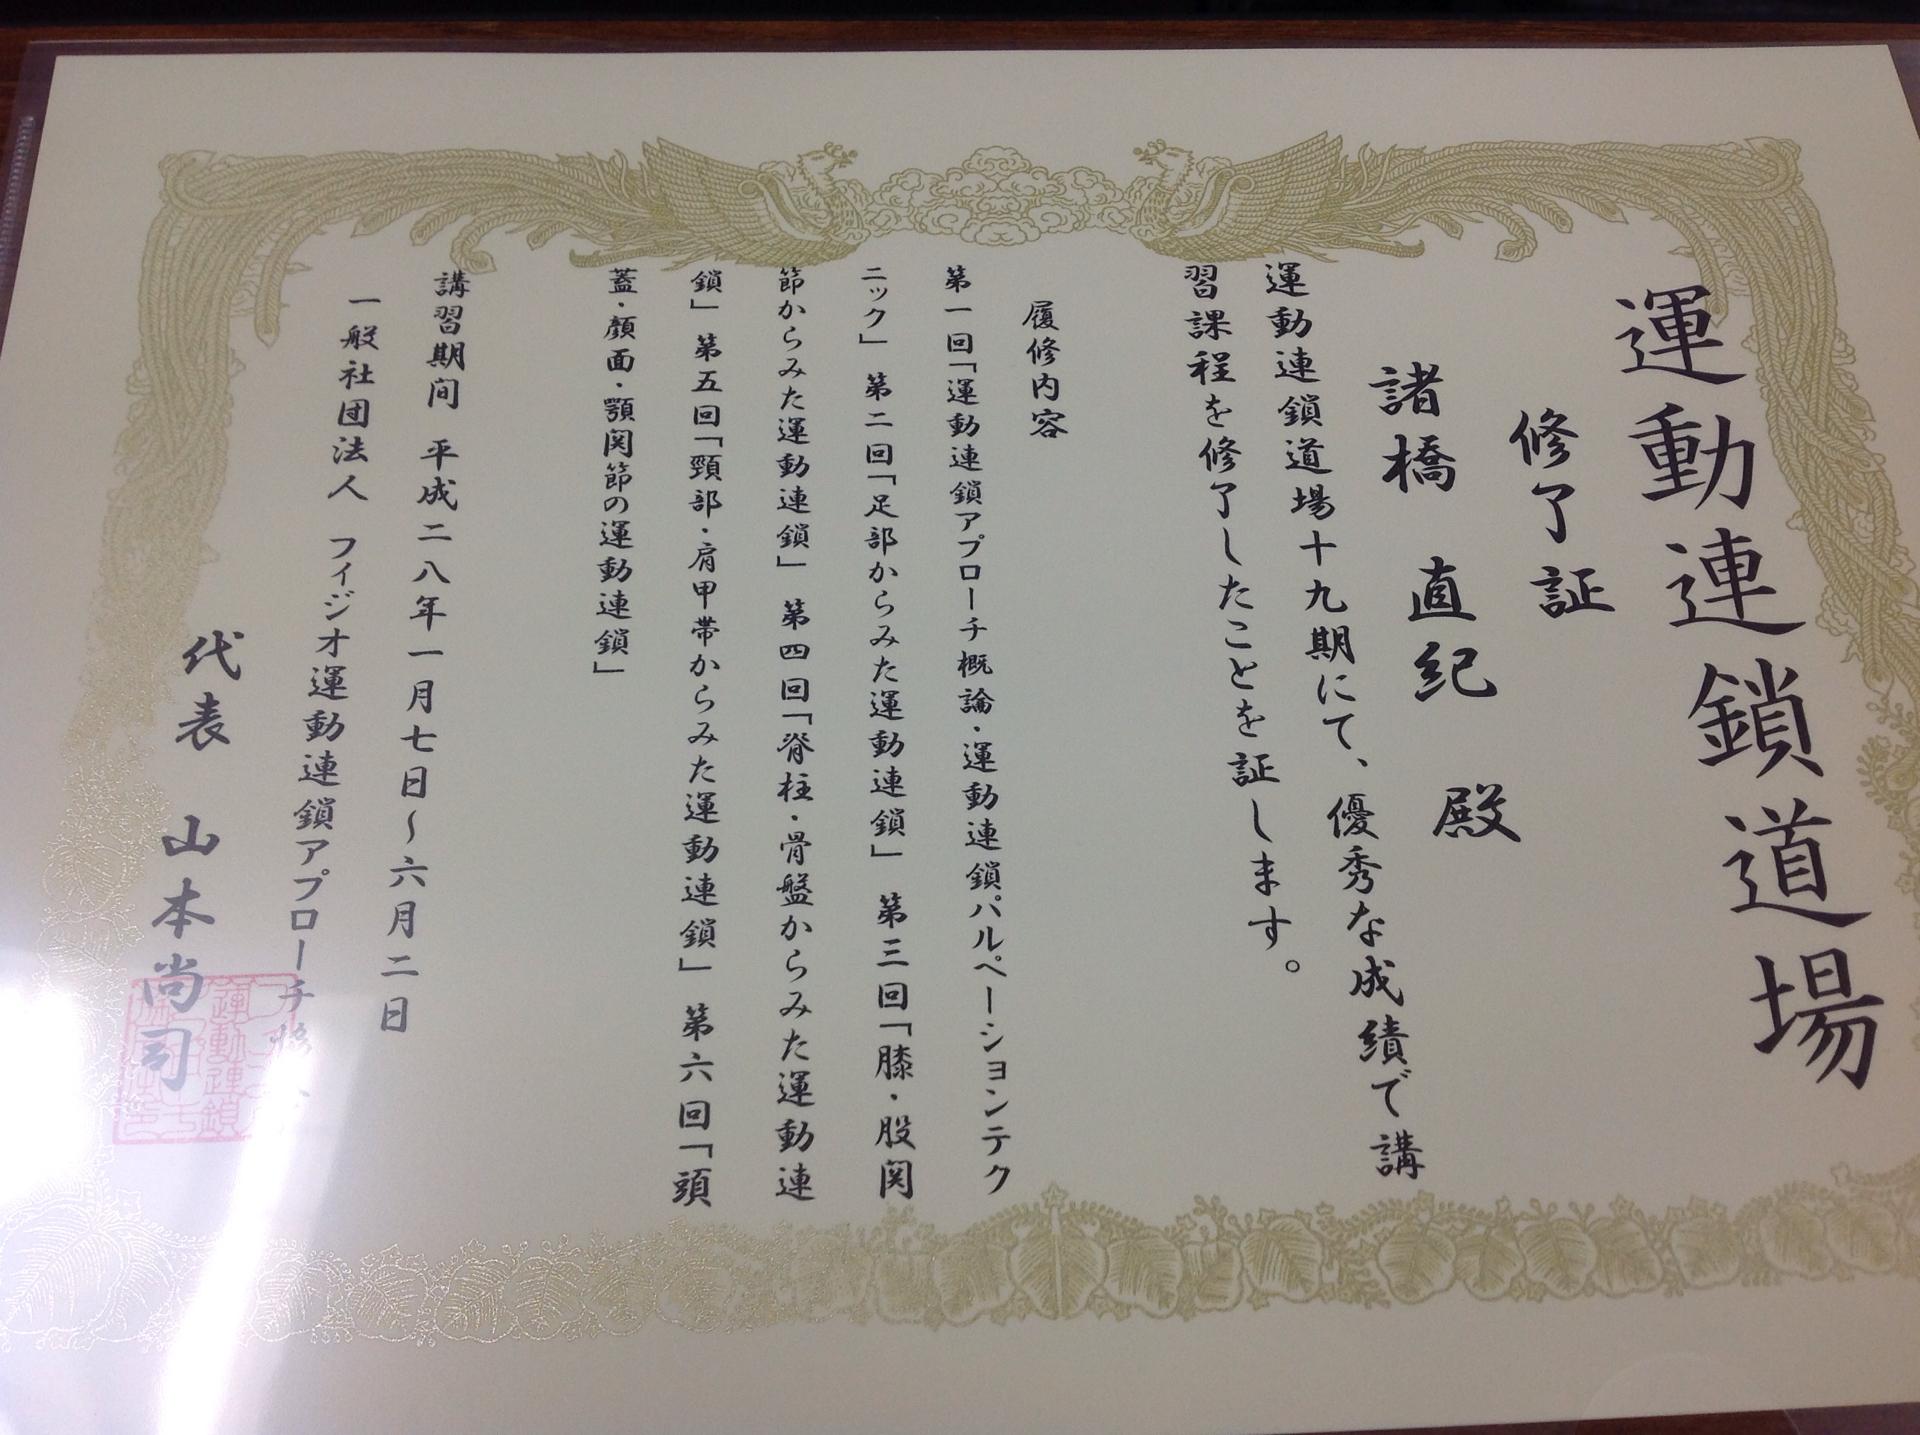 運動連鎖道場
修了証
諸橋 直紀 殿
運動連鎖道場十九期にて、優秀な成績で講
習課程を修了したことを証します。
履修内容
第一回「運動連鎖アプローチ概論・運動連鎖パルペーションテク
ニック」 第二回「足部からみた運動連鎖」 第三回「膝・股関
節からみた運動連鎖」 第四回「脊柱・骨盤からみた運動連
鎖」 第五回「頸部・肩甲帯からみた運動連鎖」 第六回「頭
蓋・顔面・顎関節の運動連鎖」
講習期間 平成二八年一月七日~六月二日
一般社団法人 フィジオ運動連鎖アプローチ協
代表 山本尚司